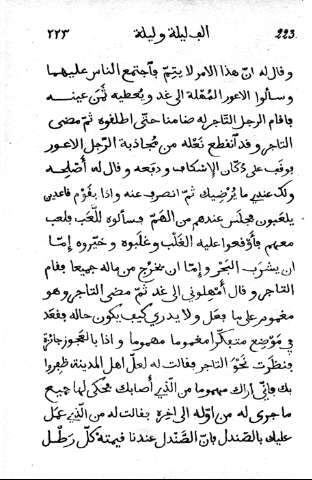 223 الف ليلة وليلة ٢٢٣
وقال له انّ هذا الامر لا يتمّ فاجتمع الناس عليهما
وسألوا الاعور المهلة الى غد ويعطيه ثمن عينه
فاقام الرجل التاجر له ضامنا حتّى اطلقوه ثمّ مضى
التاجر وقد انقطع نعله من مجاذبة الرّجل الاعور
بوقف على دكّان الإسكاف ودبعه وقال له أصلحه
ولك عندي ما يُرضيك ثمّ انصرف عنه واذا بقوم قاعدين
يلعبون فجلس عندهم من الهمّ فسألوه اللّعب فلعب
معهم فأوقعوا عليه الغلب وغلبوه وخيّروه إمّا
ان يشرب البحر وإمّا ان يخرج من ماله جميعا فقام
التاجر وقال أمهلوني الى غد ثمّ مضى التاجر وهو
مغموم على ما فعل ولا يدري كيف يكون حاله فقعد
في موضع متفكّرا مغموما مهموما واذا بالعجوز جائزة
فنظرت نحو التاجر فقالت له لعلّ اهل المدينة ظفروا
بك فإنّي أراك مهموما من الّذي أصابك فحكى لها جميع
ما جرى له من اوّله الى اخره فقالت له من الّذي عمل
عليك بالصندل فانّ الصّندل عندنا قيمته كلّ رطل